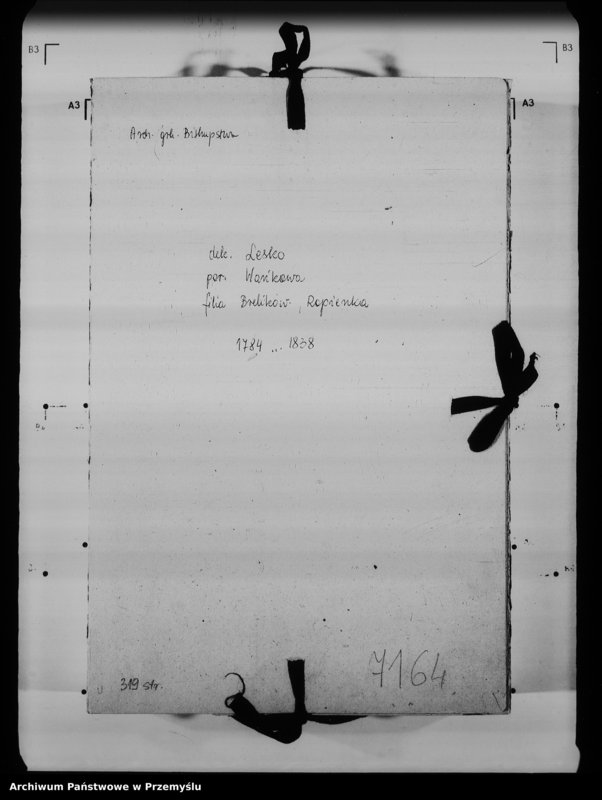 B3
B3
A3
A3
Arch. grk. Biskupstwa
dek. Lesko
par. Wańkowa
filia Brelików, Ropienka
1784 ... 1838
319 str.
7164
Archiwum Państwowe w Przemyślu